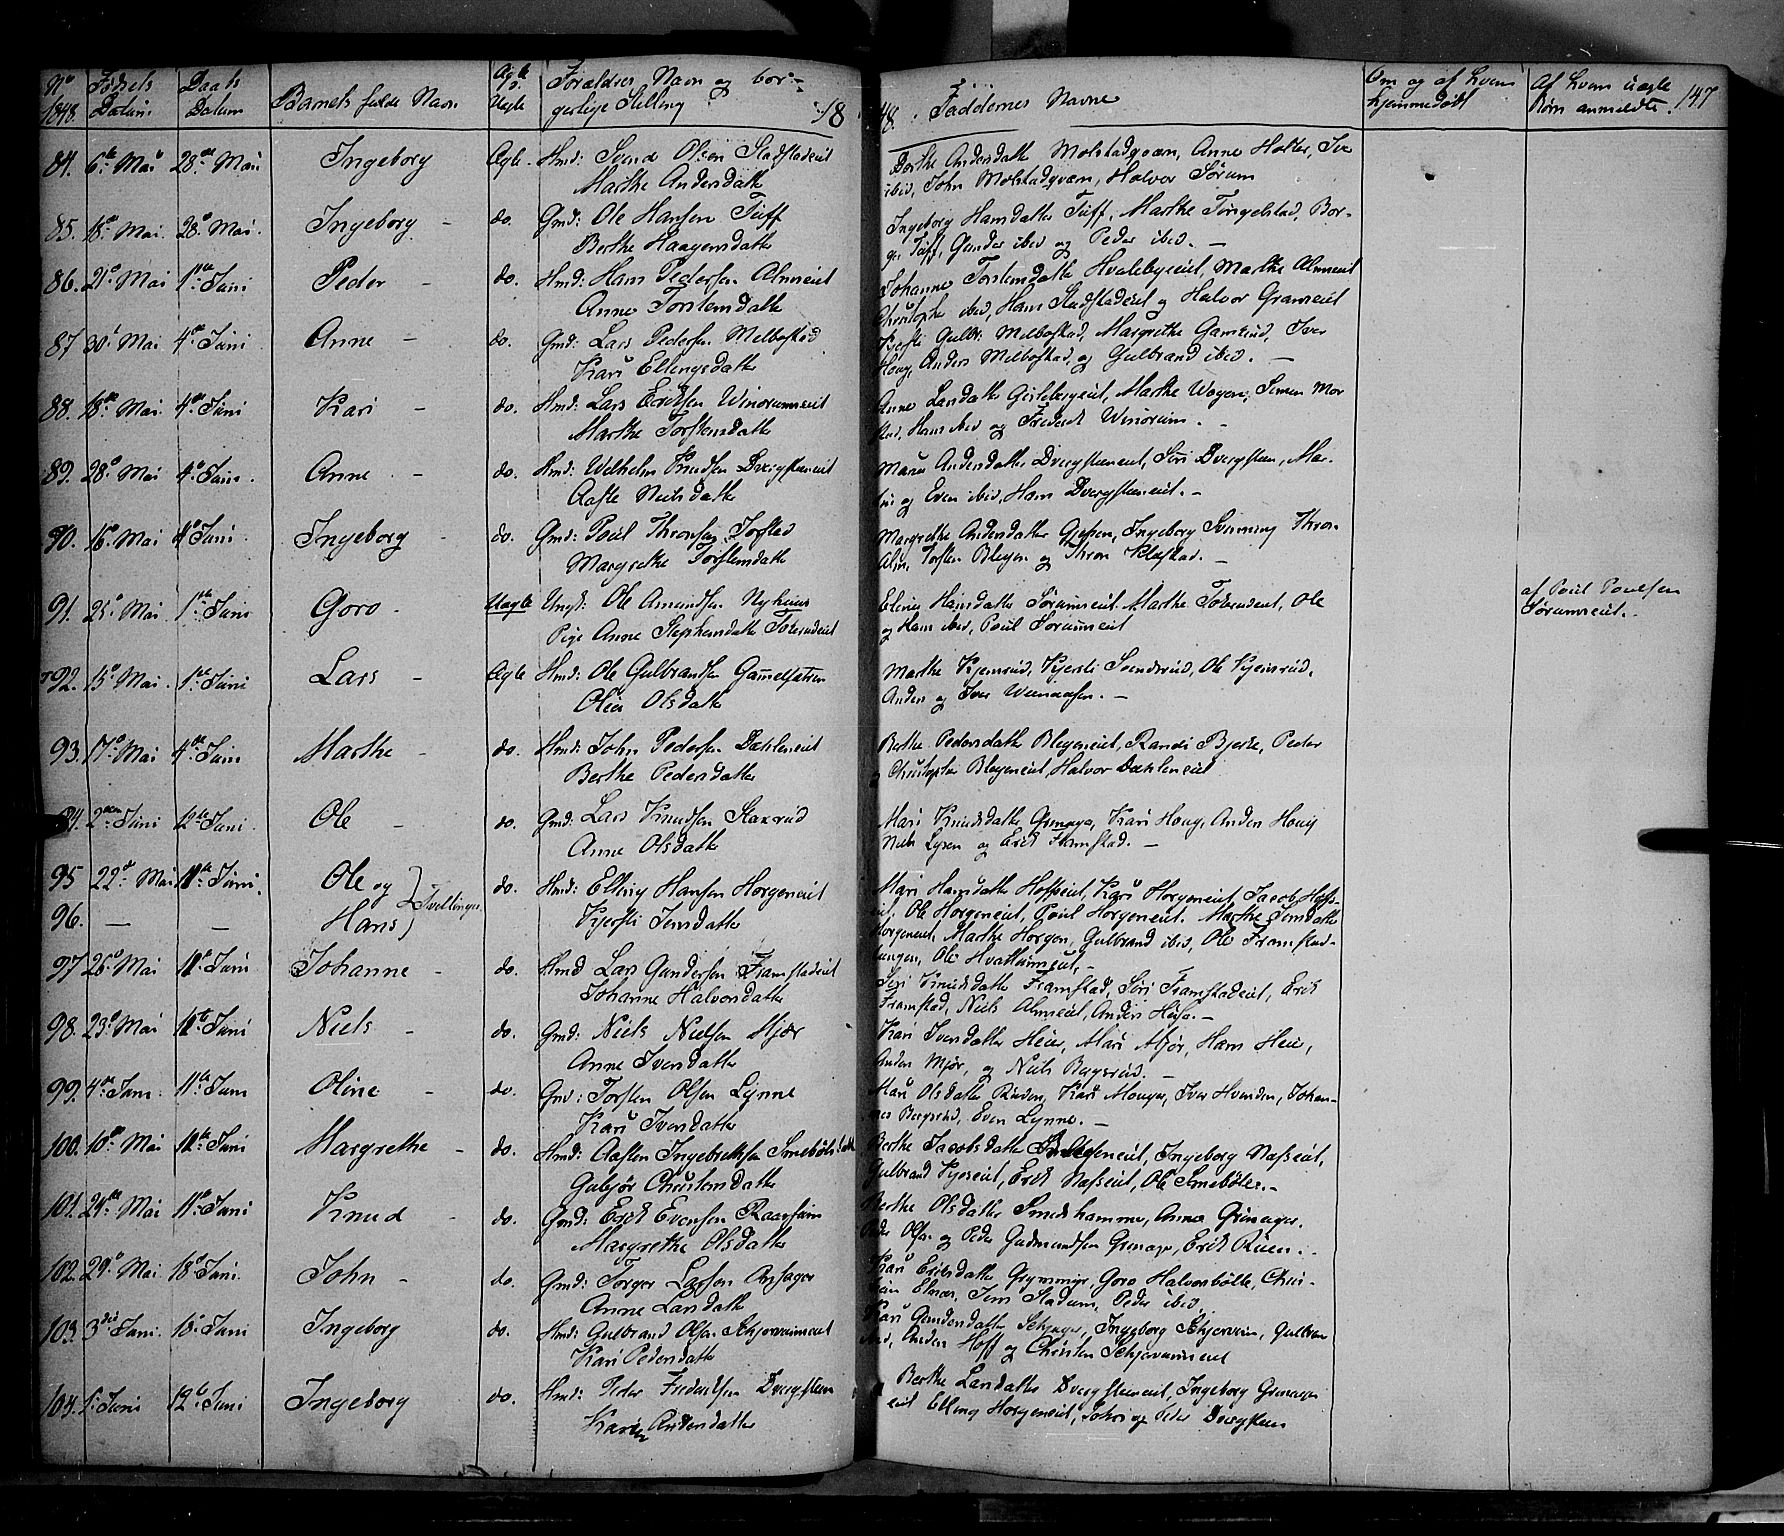 No 1848. Fødsels Datum Daabs Datum Barnets fulde Navn Ægte o. Uægte Forældres Navn og borgerlige Stilling 18
84. 6te Mai 28de Mai Ingeborg Ægte Hmd: Svend Olsen Stadstadeiet
Marthe Andersdatter
85. 18de Mai 28. Mai. Ingeborg - do. Gmd: Ole Hansen Tuff
Berthe Haagensdatter
86. 21 Mai 1ste Juni Peder - do. Hmd: Hans Pedersen Almseiet
Anne Torstensdatter
87 30 Mai 4de Juni Anne - do. Gmd: Lars Pedersen Melbostad
Kari Ellingsdatter
88. 18de Mai 4de Juni Kari - do. Hmd: Lars Eriksen Winorumseiet
Marthe Torstensdatter
89. 28 Mai 4 Juni. Anne - do. Hmd: Wilhelm Knudsen Dvergsteneiet
Aaste Nielsdatter
90. 16 Mai 4 Juni. Ingeborg - do. Gmd: Poul Thronsen Torstad
Margrethe Torstensdatter
91. 25 Mai 1ste Juni Goro - Uægte Ungk: Ole Amundsen Nyhuus
Pige Anne Stephensdatter
92. 15 Mai 1ste Juni Lars - Ægte Hmd: Ole Gulbrandsen
Olea Olsdatter
93. 17 Mai 4de Juni Marthe - do. Hmd: John Pedersen Dæhleneiet
Berthe Pedersdatter
94. 2den Juni 12te Juni Ole - do. Gmd: Lars Knudsen Staxrud
Anne Olsdatter
95 22de Mai 11te Juni. Ole og Tvellinger do. Hmd: Elling Hansen Horgeneiet
96. - - Hans Kjersti Jensdatter
97 26 Mai 11 Juni Johanne - do. Hmd Lars Gundersen Framstadeiet
Johanne Halvorsdatter
98. 23 Mai 11te Juni Niels - do. Gmd: Niels Nielsen Mjør
Anne Iversdatter
99. 4de Juni 11te Juni Oline - do. Gmd: Torsten Olsen Lynne
Kari Iversdatter
100. 10de Mai 11te Juni Margrethe - do. Hmd: Aasten Ingebretsen
Gubjør Christensdatter
101. 24de Mai 11 Juni Knud - do. Gmd: Erik Evensen Raassum
Margrethe Olsdatter
102. 29 Mai 18 Juni. John - do. Gmd: Torger Larsen
Anne Larsdatter
103. 3die Juni. 18 Juni Ingeborg do. Hmd: Gulbrand Olsen Skjervumeiet
Kari Pedersdatter
104. 1. Juni 12te Juni Ingeborg do. Hmd: Peder Fredriksen Dvergsten
Andersdatter
48. Faddernes Navne Om og af hvem hjemmedøbt Af hvem uægte Børn anmeldte. 147
Berthe Andersdatter Molstadqvern, Anne Holter, Iver
ibid, John Molstadqvern, Halvor Sørum
Ingeborg Hansdatter Tuff, Marthe Tingelstad, Bor-
ger Tuff, Gunder ibid og Peder ibid. -
Johanne Torstensdatter Hvalebyeiet, Marthe Almseiet
Christopher ibid, Hans Stadstadeiet og Halvor Grameiet
Kjersti Gulbr: Melbostad, Margrethe Gamkind, Iver
Houg, Anders Melbostad, og Gulbrand ibid. -
Anne Larsdatter Gislebergeiet, Marthe Wogen, Simen Mor
stad, Hans ibid og Frederik Winorum. -
Maria Andersdatter Dvergsteneiet, Siri Dvergsten, Mar-
tin og Even ibid, Hans Dvergsteneiet. -
Margrethe Andersdatter Ingeborg Svinning Thron
Alm, Torsten Blegen og Thron -
Eline Hansdatter Sørumseiet Marthe Ole
og Hans ibid, Poul Sørumeiet af Poul Poulsen
Sørumseiet. -
Marthe Kjemrud, Kjersti Svendsrud, Ole Kjemrud,
Anders og Iver -
Berthe Pedersdatter Blegeneiet, Randi Bjerke, Peder
og Christopher Blegeneiet, Halvor Dæhleneiet
Mari Knudsdatter Grinager, Kari Houg, Anders Houg
Niels Lysen og Erik Framstad. -
Mari Hansdatter Hoffseiet, Kari Horgeneiet, Jacob Hoffs-
eiet, Ole Horgeneiet, Poul Horgeneiet. Marthe Jensdatter
Horgeneiet, Marthe Horgen, Gulbrand ibid, Ole Framstad-
Ole Hvattumeiet, -
Siri Knudsdatter Framstad, Siri Framstadeiet, Erik
Framstad, Niels Almseiet, Anders -
Kari Iversdatter Heier, Mari Mjør, Hans Heier,
Anders Mjør, og Niels Bergsrud. -
Mari Olsdatter Ruden, Kari Moger, Iver Hvinden, Johan-
nes Bergsrud, Even Lynne. -
Berthe Jacobsdatter Ingeborg Næsseiet,
Gulbrand Erik Næsseiet, Ole Smebøle. -
Berthe Olsdatter Smedshammer, Anne Grinager.
Peder Olsen og Peder Gudmundsen Grinager, Erik Ruen. -
Kari Eriksdatter Grymyr, Goro Halvorsbølle, Chris-
Jens Stadum, Peder ibid.
Kari Gundersdatter Ingeborg Skjervum, Gulbran
ibid, Anders Hoff og Christen Skjervumeiet
Berthe Larsdatter Dvergsteneiet, Ingeborg Grinager
eiet Elling Horgeneiet, og Peder Dvergsten